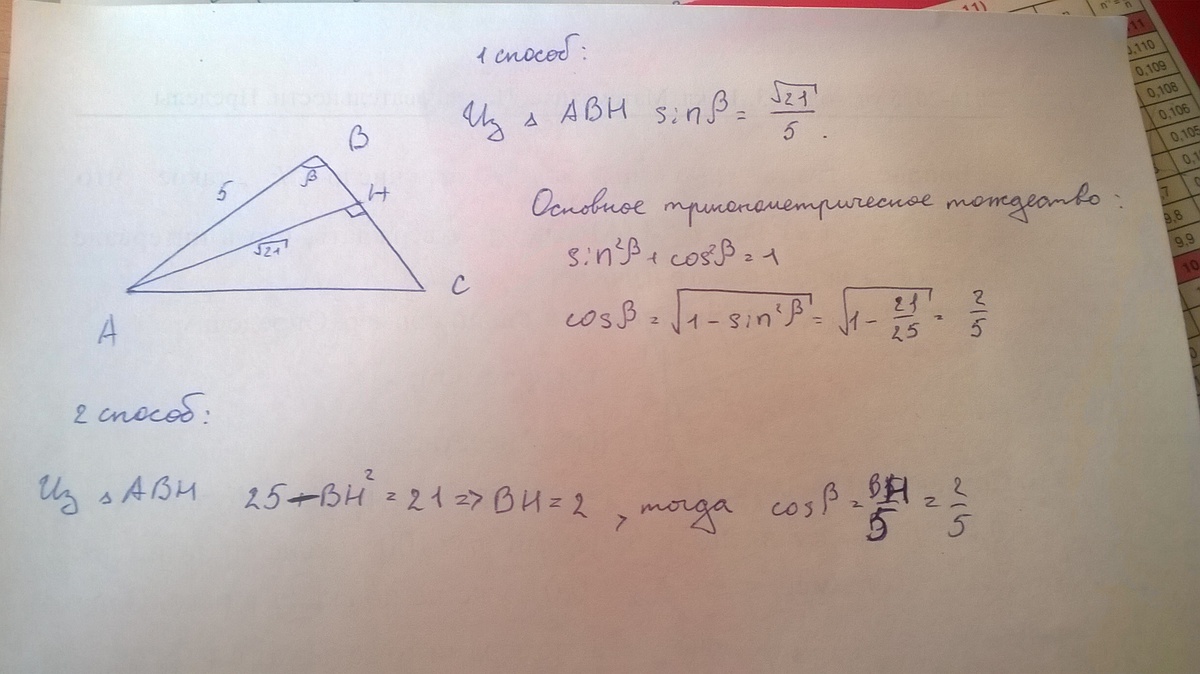 1 способ:
Из △ ABH sinβ = √21/5.
B
5
β
H
√21
A
C
Основное тригонометрическое тождество:
sin²β + cos²β = 1
cosβ = √(1 - sin²β) = √(1 - 21/25) = 2/5
2 способ:
Из △ ABH 25 - BH² = 21 => BH = 2, тогда cosβ = BH/5 = 2/5
11)
n
11
0,110
0,109
0,108
0,106
9,8
9,9
10